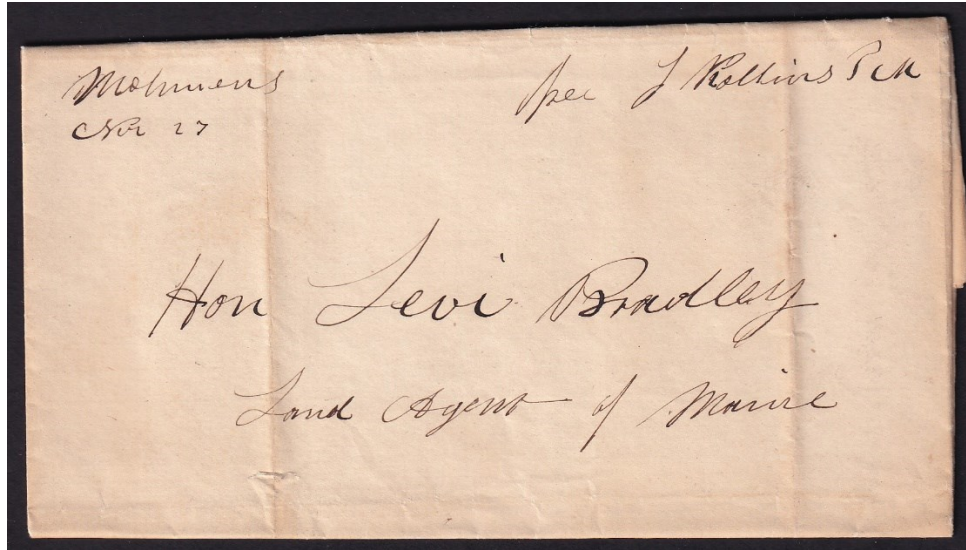 Molunkus
Nov 27
free J Rollins P M
Hon Levi Bradley
Land Agent of Maine